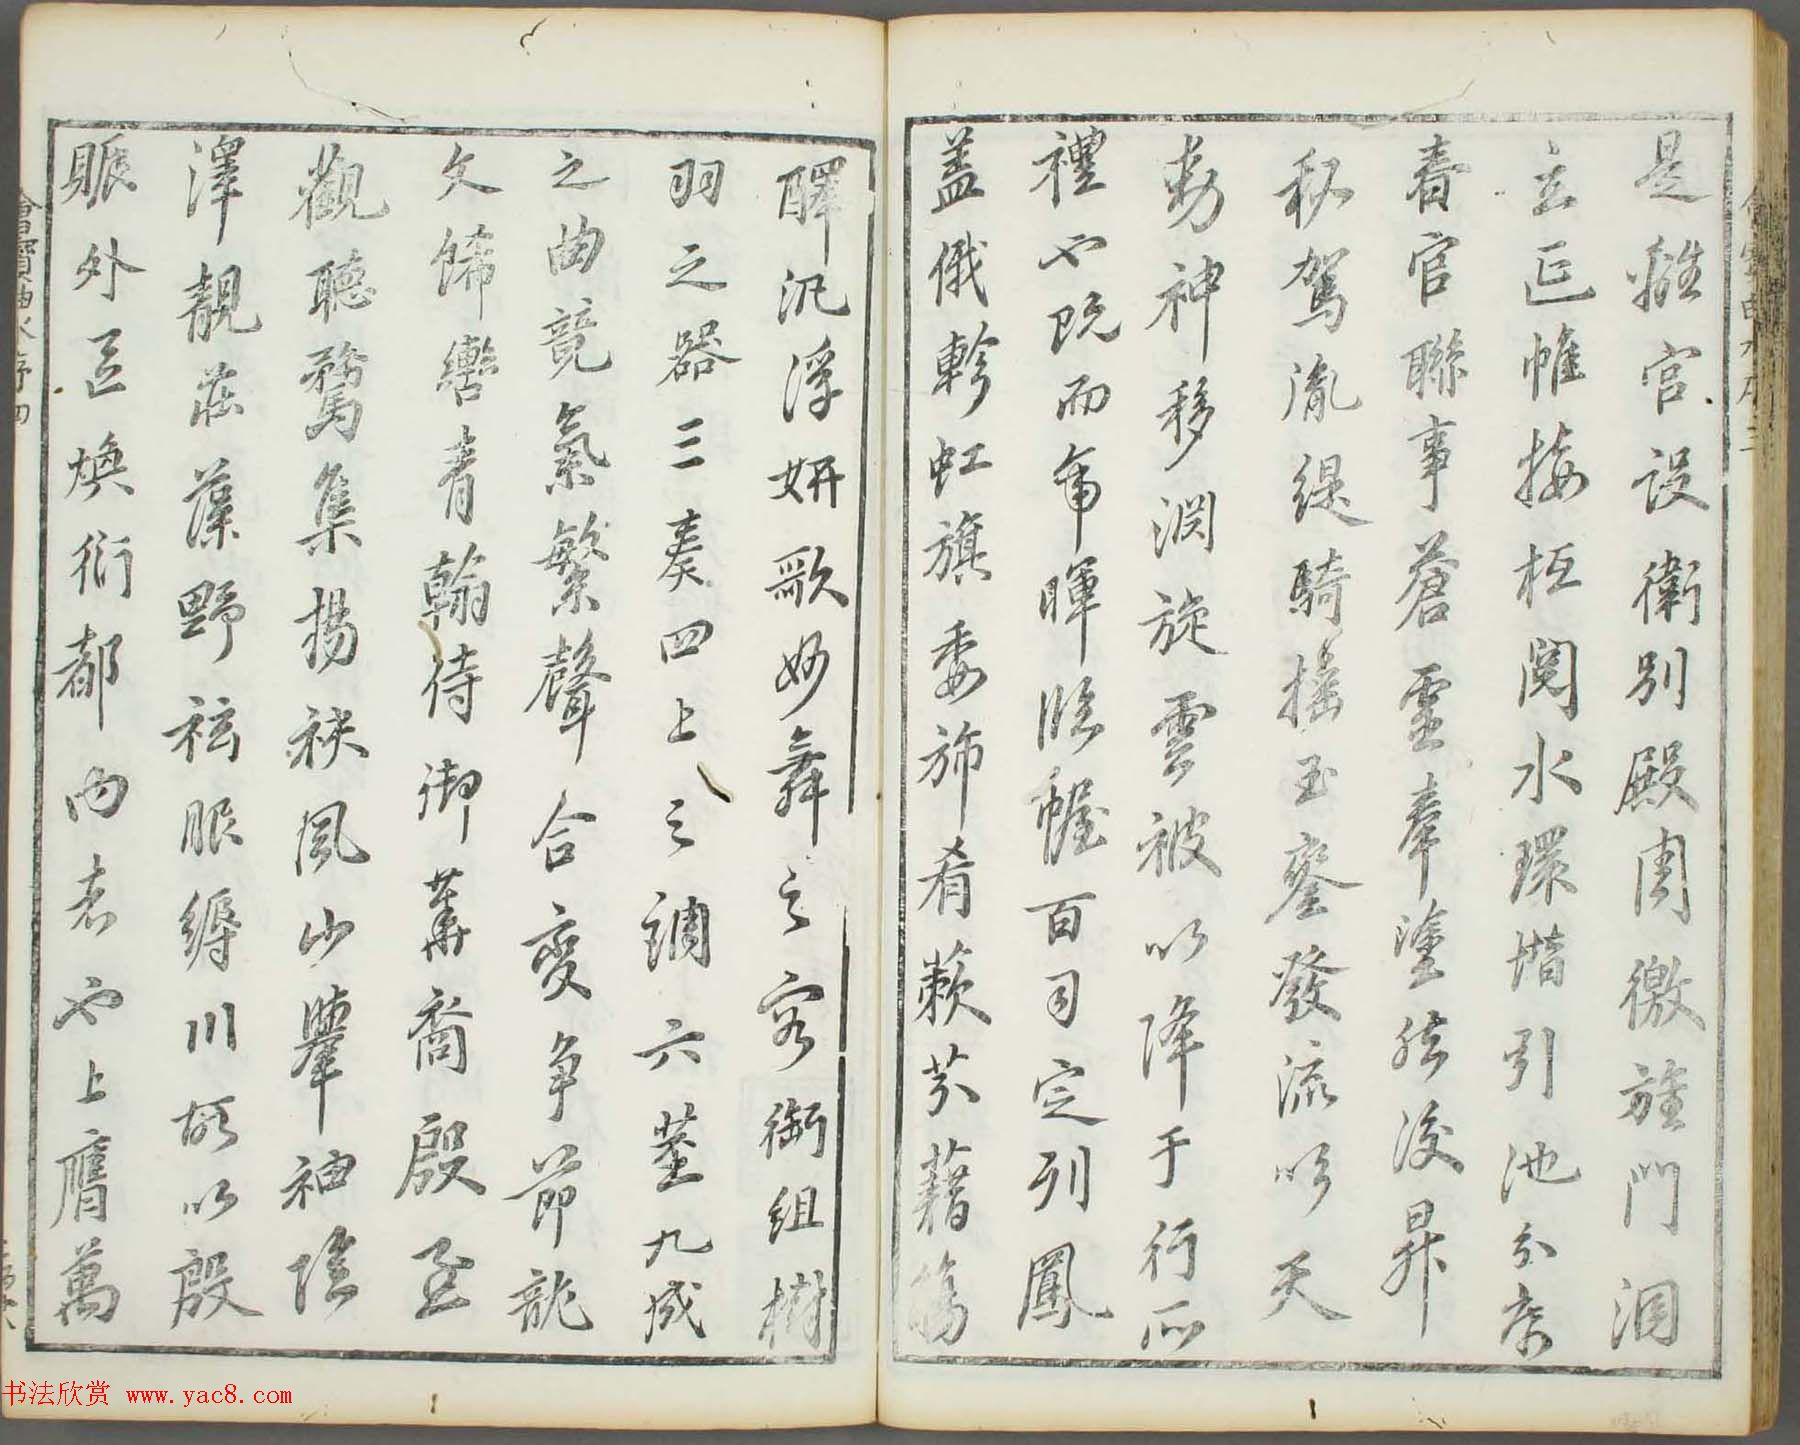 是離宮設衛別殿周徼旌門洞
立延帷接枑閱水環階引池分席
春官聯事蒼靈奉塗然後昇
秘駕胤緹騎搖玉鑾發流吹天
動神移淵旋雲被以降于行所
禮也既而帝暉臨幄百司定列鳳
蓋俄軫虹旗委旆肴蔌芬藉觴
醳汎浮妍歌妙舞之容銜組樹
羽之器三奏四上之調六莖九成
之曲競氣繁聲合變爭節龍
文飾轡青翰侍御華裔殷至
觀聽騖集揚袂風山舉袖陰
澤靚莊藻野袨服縟川故以殷
賑外區煥衍都內者也上膺萬
曲水序四
书法欣赏 www.yac8.com